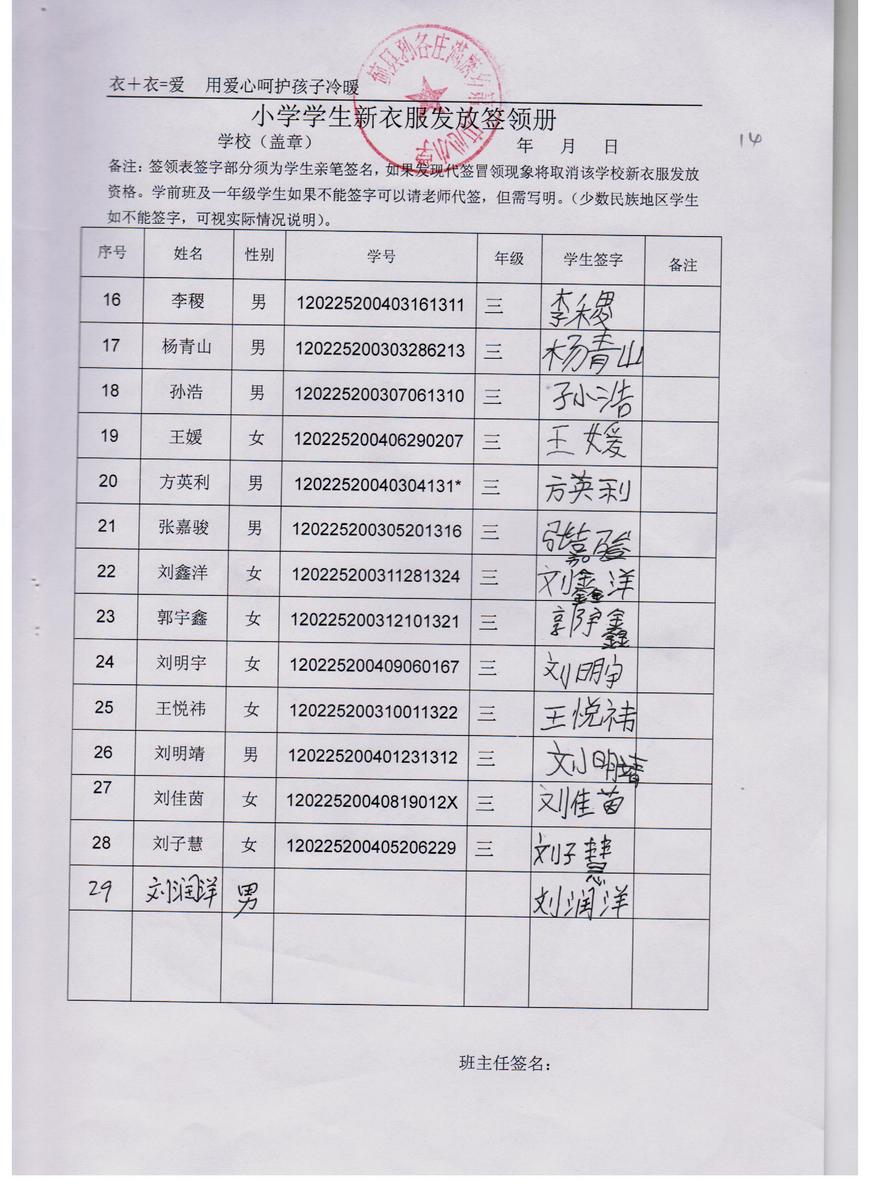 衣＋衣=爱 用爱心呵护孩子冷暖
小学学生新衣服发放签领册
学校（盖章） 年 月 日
14
备注：签领表签字部分须为学生亲笔签名，如果发现代签冒领现象将取消该学校新衣服发放
资格。学前班及一年级学生如果不能签字可以请老师代签，但需写明。（少数民族地区学生
如不能签字，可视实际情况说明）。
序号 姓名 性别 学号 年级 学生签字 备注
16 李稷 男 120225200403161311 三 李稷
17 杨青山 男 120225200303286213 三 杨青山
18 孙浩 男 120225200307061310 三 孙浩
19 王媛 女 120225200406290207 三 王媛
20 方英利 男 12022520040304131* 三 方英利
21 张嘉骏 男 120225200305201316 三 张嘉骏
22 刘鑫洋 女 120225200311281324 三 刘鑫洋
23 郭宇鑫 女 120225200312101321 三 郭宇鑫
24 刘明宇 女 120225200409060167 三 刘明宇
25 王悦祎 女 120225200310011322 三 王悦祎
26 刘明靖 男 120225200401231312 三 刘明靖
27 刘佳茵 女 12022520040819012X 三 刘佳茵
28 刘子慧 女 120225200405206229 三 刘子慧
29 刘润洋 男 刘润洋
班主任签名：